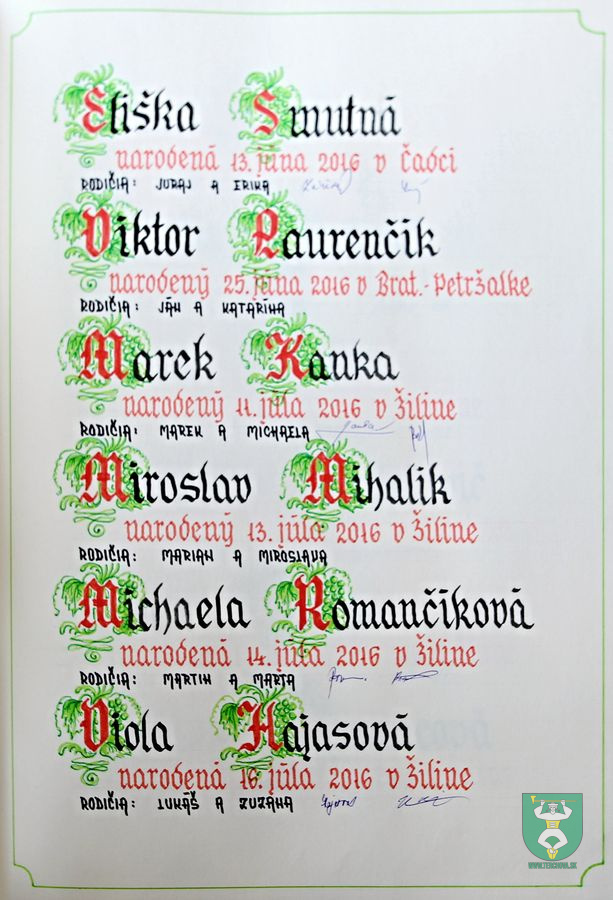 Eliška Smutná
narodená 13. júna 2016 v Čadci
RODIČIA: JURAJ A ERIKA
Viktor Laurenčík
narodený 25. júna 2016 v Brat.-Petržalke
RODIČIA: JÁN A KATARÍNA
Marek Kanka
narodený 11. júla 2016 v Žiline
RODIČIA: MAREK A MICHAELA
Miroslav Mihalík
narodený 13. júla 2016 v Žiline
RODIČIA: MARIAN A MIROSLAVA
Michaela Romančíková
narodená 14. júla 2016 v Žiline
RODIČIA: MARTIN A MARTA
Viola Hajasová
narodená 16. júla 2016 v Žiline
RODIČIA: LUKÁŠ A ZUZANA
WWW.TERCHOVA.SK